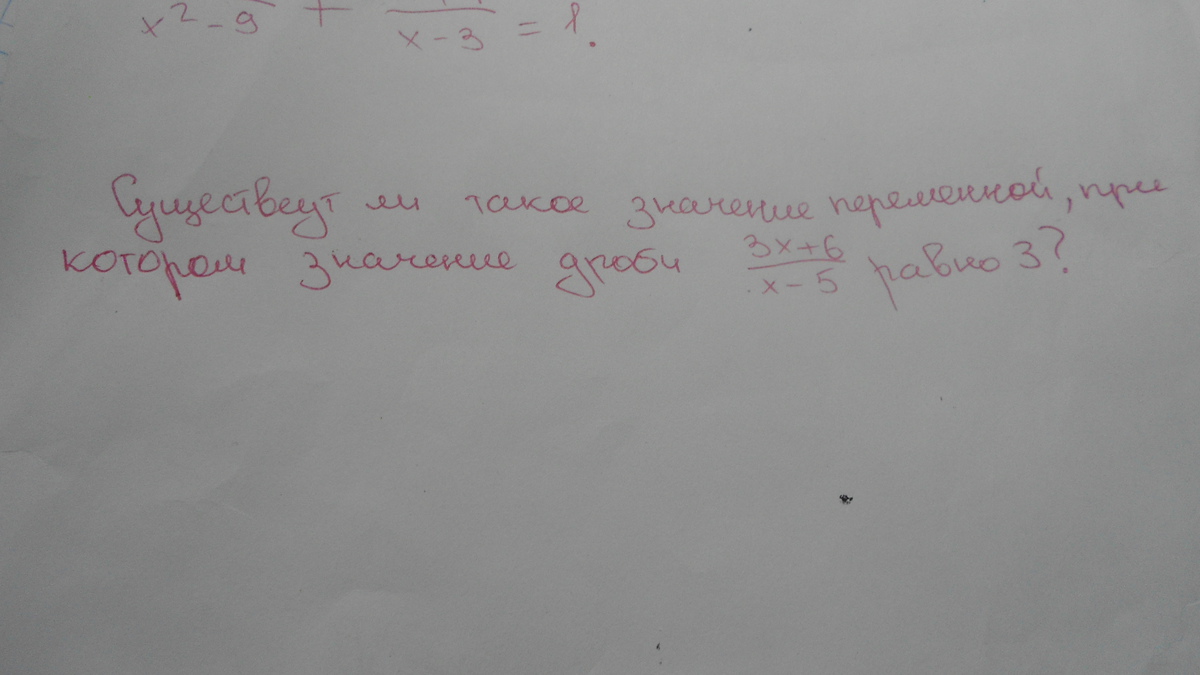 x² - 9 + x - 3 = 1.
Существует ли такое значение переменной, при
котором значение дроби (3x+6)/(x-5) равно 3?